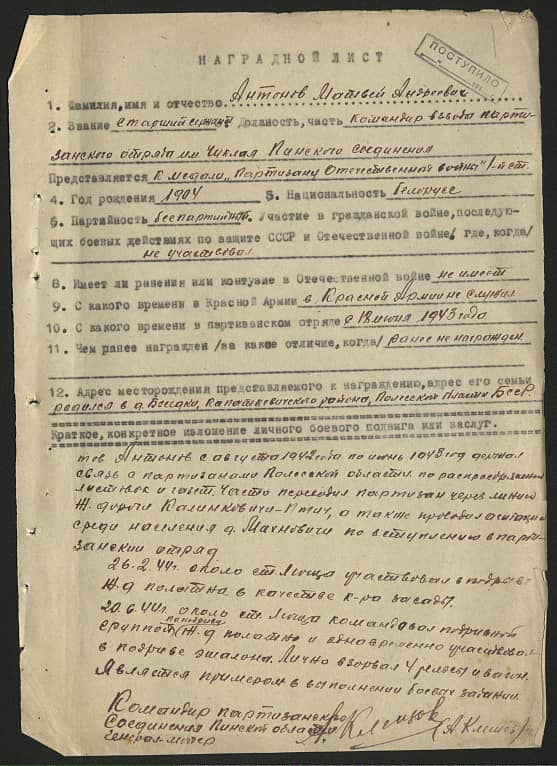 НАГРАДНОЙ ЛИСТ
ПОСТУПИЛО
1. Фамилия, имя и отчество. Антонов Матвей Андреевич
2. Звание старший сержант Должность, часть Командир взвода парти-
занского отряда им Чуклая Пинского соединения
Представляется к медали „Партизану Отечественной войны" I-й ст.
4. Год рождения 1904 5. Национальность белорусс
6. Партийность беспартийный Участие в гражданской войне, последую-
щих боевых действиях по защите СССР и Отечественной войне/ где, когда/
не участвовал
8. Имеет ли ранения или контузие в Отечественной войне не имеет
9. С какого времени в Красной Армии в Красной Армии не служил
10. С какого времени в партизанском отряде с 18 июня 1943 года
11. Чем ранее награжден /за какое отличие, когда/ ранее не награжден
12. Адрес месторождения представляемого к награждению, адрес его семьи
родился в д. Копаткевичского района, Полесской области БССР.
Краткое, конкретное изложение личного боевого подвига или заслуг.
тов Антонов с августа 1942 года по июнь 1943 год держал
связь с партизанами Полесской области по распространению
листовок и газет. Часто переводил партизан через линию
ж. дороги Калинковичи-Птич, а также проводил агитацию
среди населения д. Махновичи по вступлению в парти-
занский отряд
26.2.44г. около ст. Люща участвовал в подрыве
ж.д полотна в качестве к-ра засады.
20.6.44г. около ст. Люща командовал подрывной
группой по подрыву ж.д полотно и одновременно участвовал
в подрыве эшалона. Лично взорвал 4 рельсы и вагон.
Является примером в выполнении боевых задании.
Командир партизанского
Соединения Пинской области
Генерал-маиор